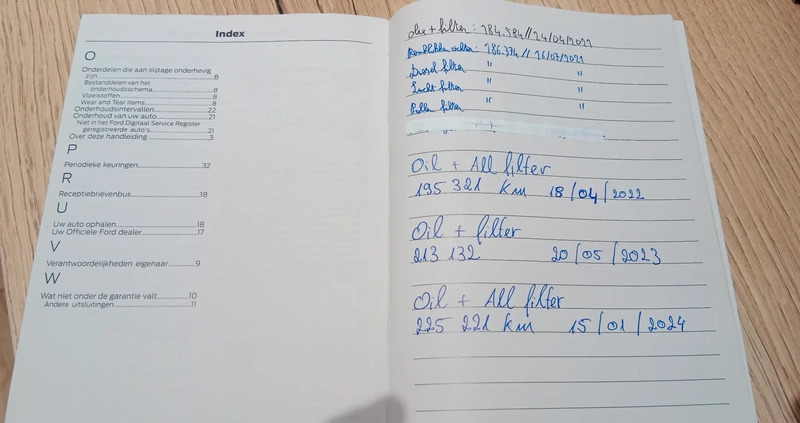 Index
O
Onderdelen die aan slijtage onderhevig
zijn....................8
Bestanddelen van het
onderhoudsschema....................8
Vloeistoffen....................8
Wear and Tear Items....................8
Onderhoudsintervallen....................22
Onderhoud van uw auto....................21
Niet in het Ford Digitaal Service Register
geregistreerde auto's....................21
Over deze handleiding....................3
P
Periodieke keuringen....................32
R
Receptiebrievenbus....................18
U
Uw auto ophalen....................18
Uw Officiële Ford dealer....................17
V
Verantwoordelijkheden eigenaar....................9
W
Wat niet onder de garantie valt....................10
Andere uitsluitingen....................11
olie + filter : 184.584 // 24/04/2021
achter : 186.374 // 16/07/2021
Diesel filter " "
Lucht filter " "
Pollen filter " "
Oil + All filter
195 321 km 18/04/2022
Oil + filter
213 132 20/05/2023
Oil + All filter
225 221 km 15/01/2024